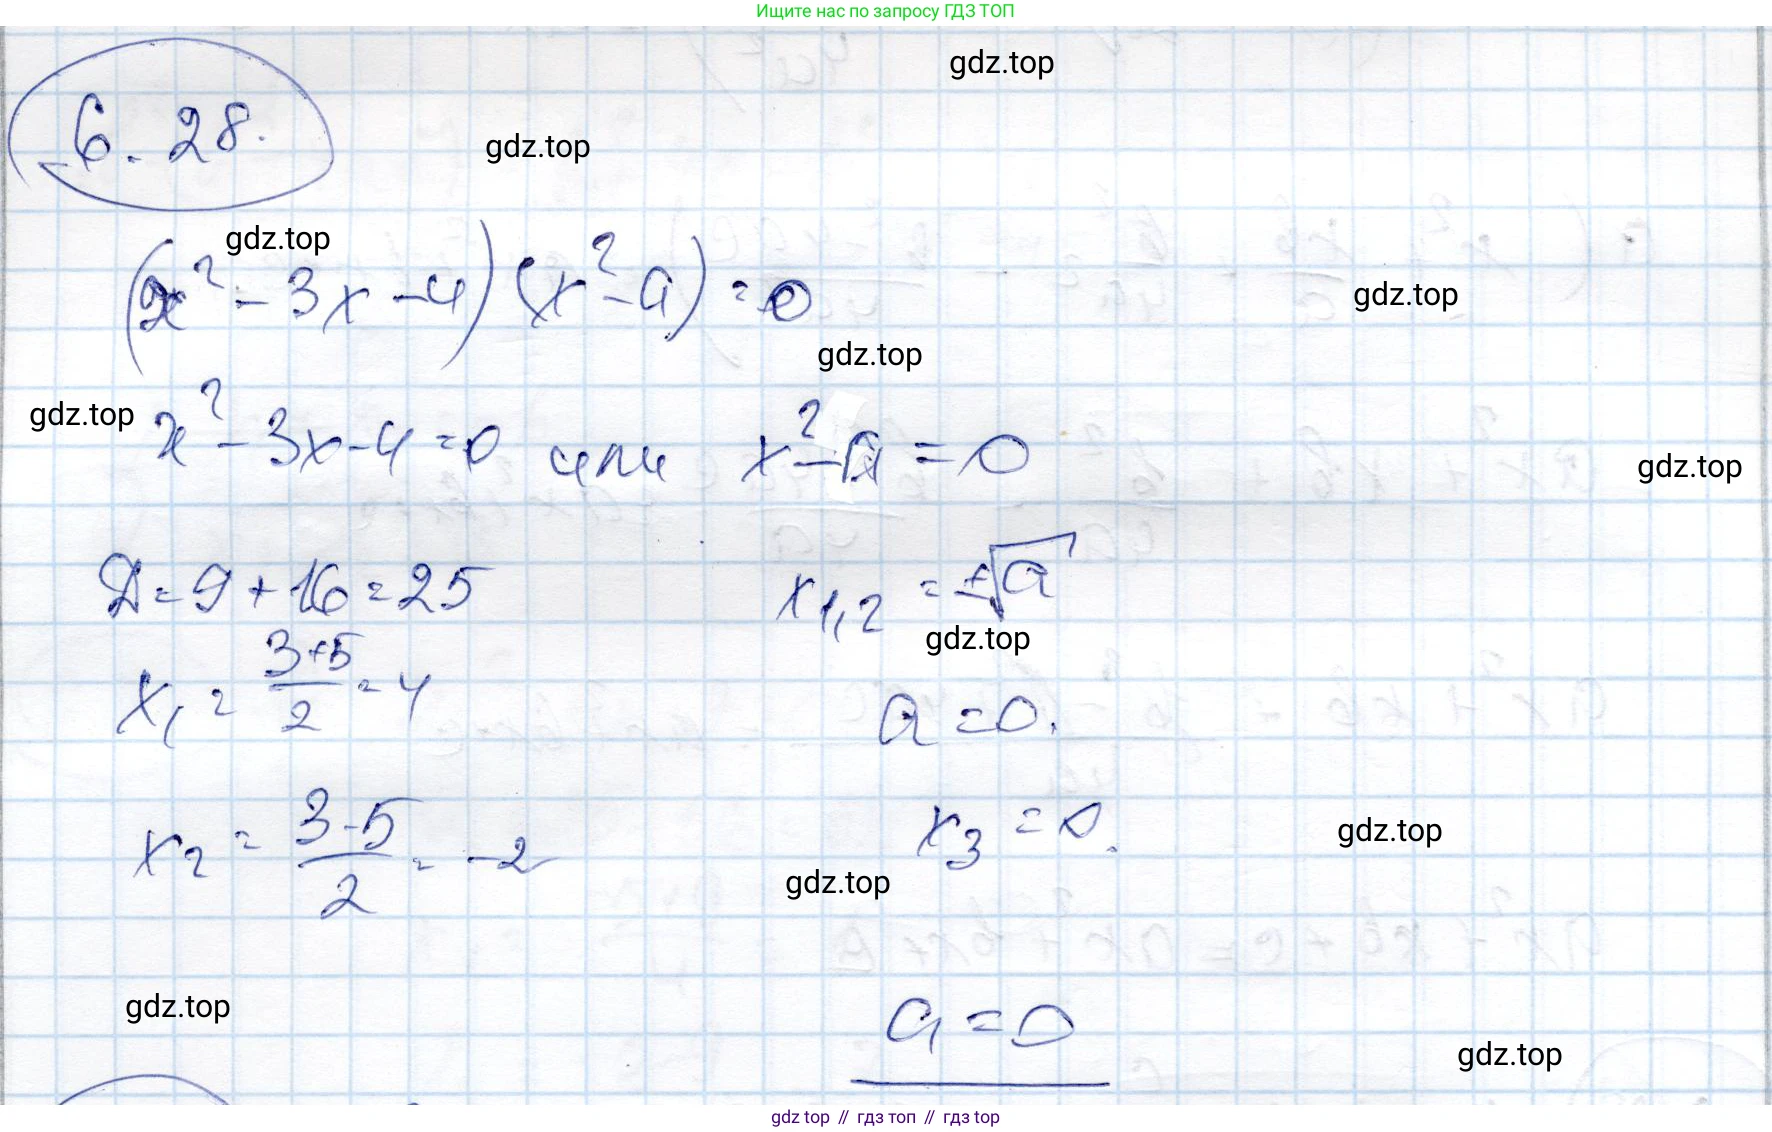 Ищите нас по запросу ГДЗ ТОП
gdz.top
6.28.
gdz.top
gdz.top
(x² - 3x - 4)(x² - a) = 0
gdz.top
gdz.top
gdz.top
x² - 3x - 4 = 0 или x² - a = 0
gdz.top
Д = 9 + 16 = 25
x₁,₂ = ±√a
gdz.top
x₁ = (3+5)/2 = 4
a = 0.
x₂ = (3-5)/2 = -2
x₃ = 0.
gdz.top
gdz.top
gdz.top
a = 0
gdz.top
gdz top // гдз топ // гдз top